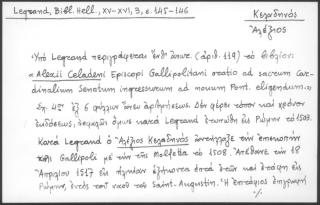 Legrand, Bibl. Hell., XV-XVI, 3, σ. 145-146
Κελαδηνός
Ἀλέξιος
Ὑπὸ Legrand περιγράφεται ἔνθ' ἀνωτ. (ἀριθ. 119) τὸ βιβλίον:
« Alexii Celadeni Episcopi Gallipolitani oratio ad sacrum Car-
dinalium Senatum ingressurum ad novum Pont. eligendum. »
Σχ. 4ον ἐξ 6 φύλλων ἄνευ ἀριθμήσεως. Δὲν φέρει τόπον καὶ χρόνον
ἐκδόσεως, ὅμως κατὰ Legrand ἐτυπώθη ἐν Ρώμῃ τὸ 1503.
Κατὰ Legrand ὁ Ἀλέξιος Κελαδηνὸς ἀντήλλαξε τὴν ἐπισκοπὴν
τῆς Gallipoli μὲ τὴν τῆς Molfetta τὸ 1508. Ἀπέθανε τὴν 18
Ἀπριλίου 1517 ἐν ἡλικίᾳ ἑξήκοντα ἑπτὰ ἐτῶν καὶ ἐτάφη ἐν
Ρώμῃ, ἐντὸς τοῦ ναοῦ τοῦ Saint-Augustin. Ἡ ἐπιτάφιος ἐπιγραφὴ
·/.